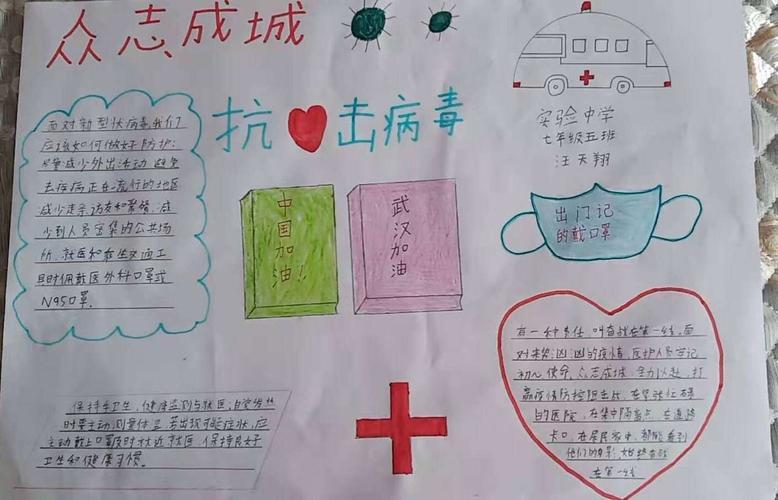 众志成城
抗击病毒
实验中学
七年级五班
汪天翔
面对新型状病毒我们
应该如何做好防护:
尽量减少外出活动 避免
去疾病正在流行的地区
减少走亲访友和聚餐,减
少到人员密集的公共场
所,就医和乘坐交通工
具时佩戴医外科口罩或
N95口罩.
中国加油!!
武汉加油
出门记
的戴口罩
有一种责任,叫奋战在第一线,面
对来势汹汹的疫情,医护人员牢记
初心使命,众志成城,全力以赴,打
赢疫情防控阻击战,在紧张忙碌
的医院,在集中隔离点,在道路
卡口,在居民家中,都能看到
他们的身影,始终奋战
在第一线
保持手卫生,健康监测与就医:自觉发热
时要主动测量体温 若出现可疑症状,应
主动戴上口罩及时就近就医,保持良好
卫生和健康习惯。